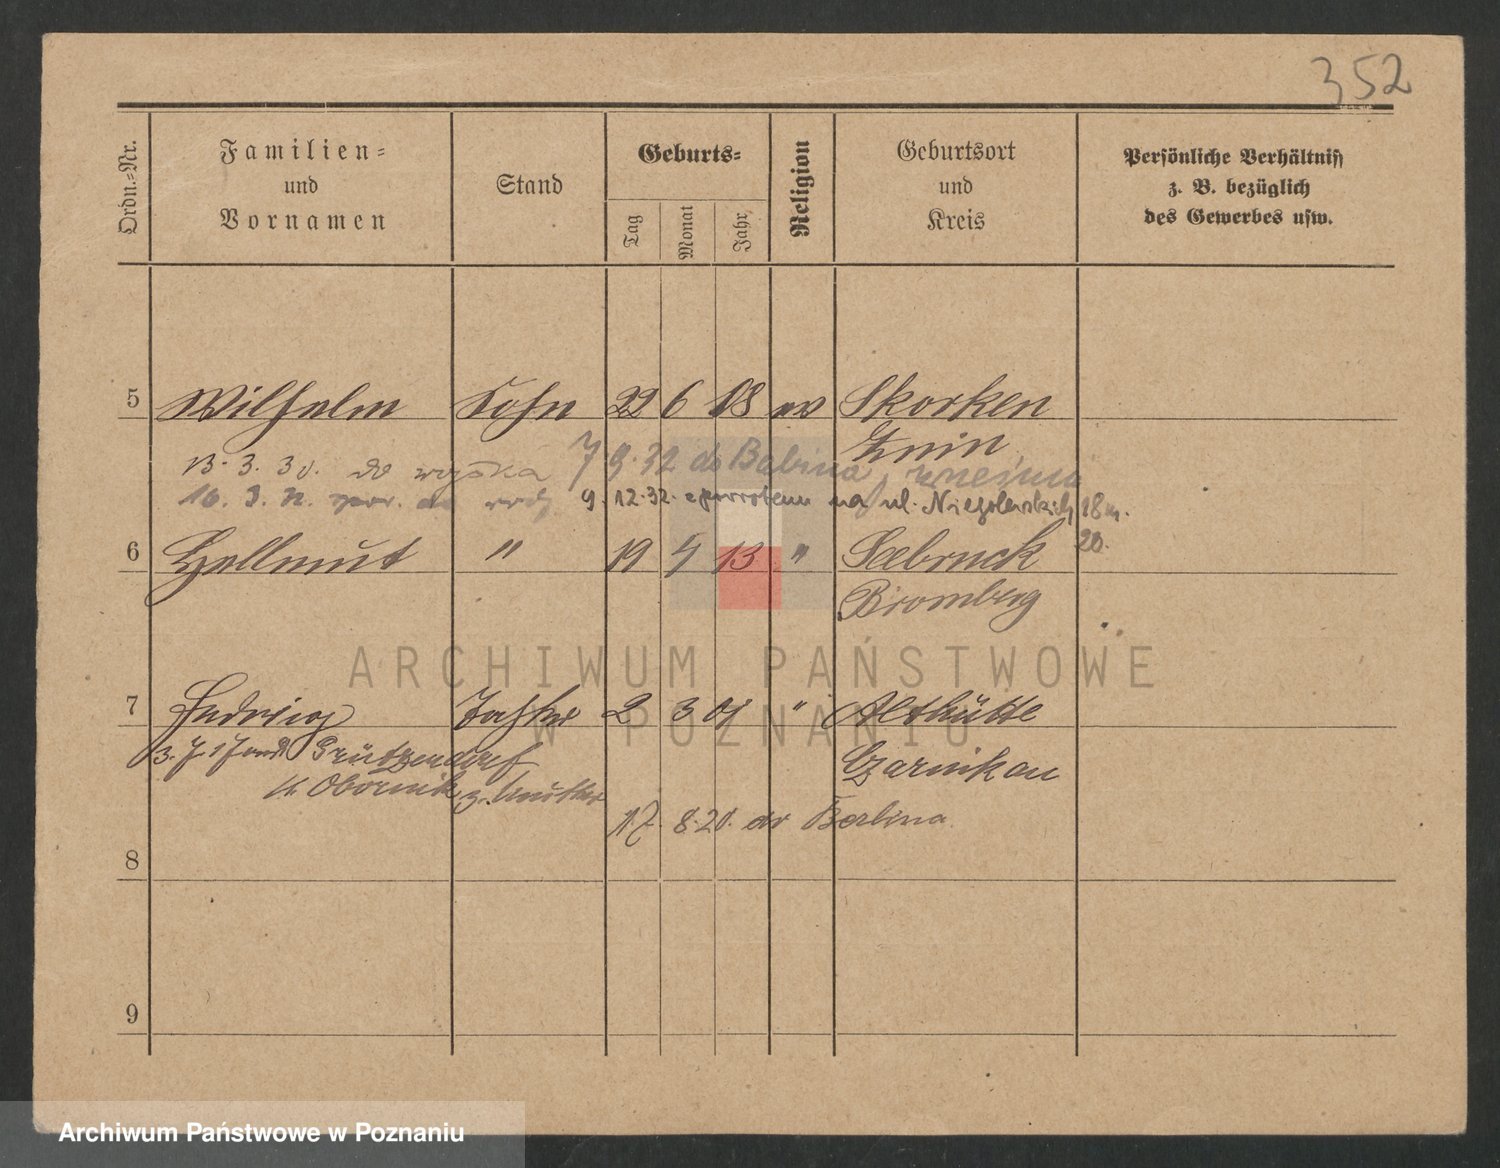 352
Ordn.-Nr.
Familien-
und
Vornamen
Stand
Geburts-
Tag
Monat
Jahr
Religion
Geburtsort
und
Kreis
Persönliche Verhältniss
z. B. bezüglich
des Gewerbes usw.
5 Wilhelm Sohn 22 6 08 ev Skorken
Znin
13. 3. 30. do wojska 7 9. 32 do Babina
16. 3. 9. 12. 32. z powrotem na ul. Niegolewskich 18 m.
20.
6 Hellmut " 19 4 13 " Seebruck
Bromberg
ARCHIWUM PAŃSTWOWE
W POZNANIU
7 Hedwig Tochter 2 3 01 " Althütte
3. 7. 17 nach Grützendorf Czarnikau
Kr Obornik z. Mutter
17. 8. 20. do Berlina
8
9
Archiwum Państwowe w Poznaniu